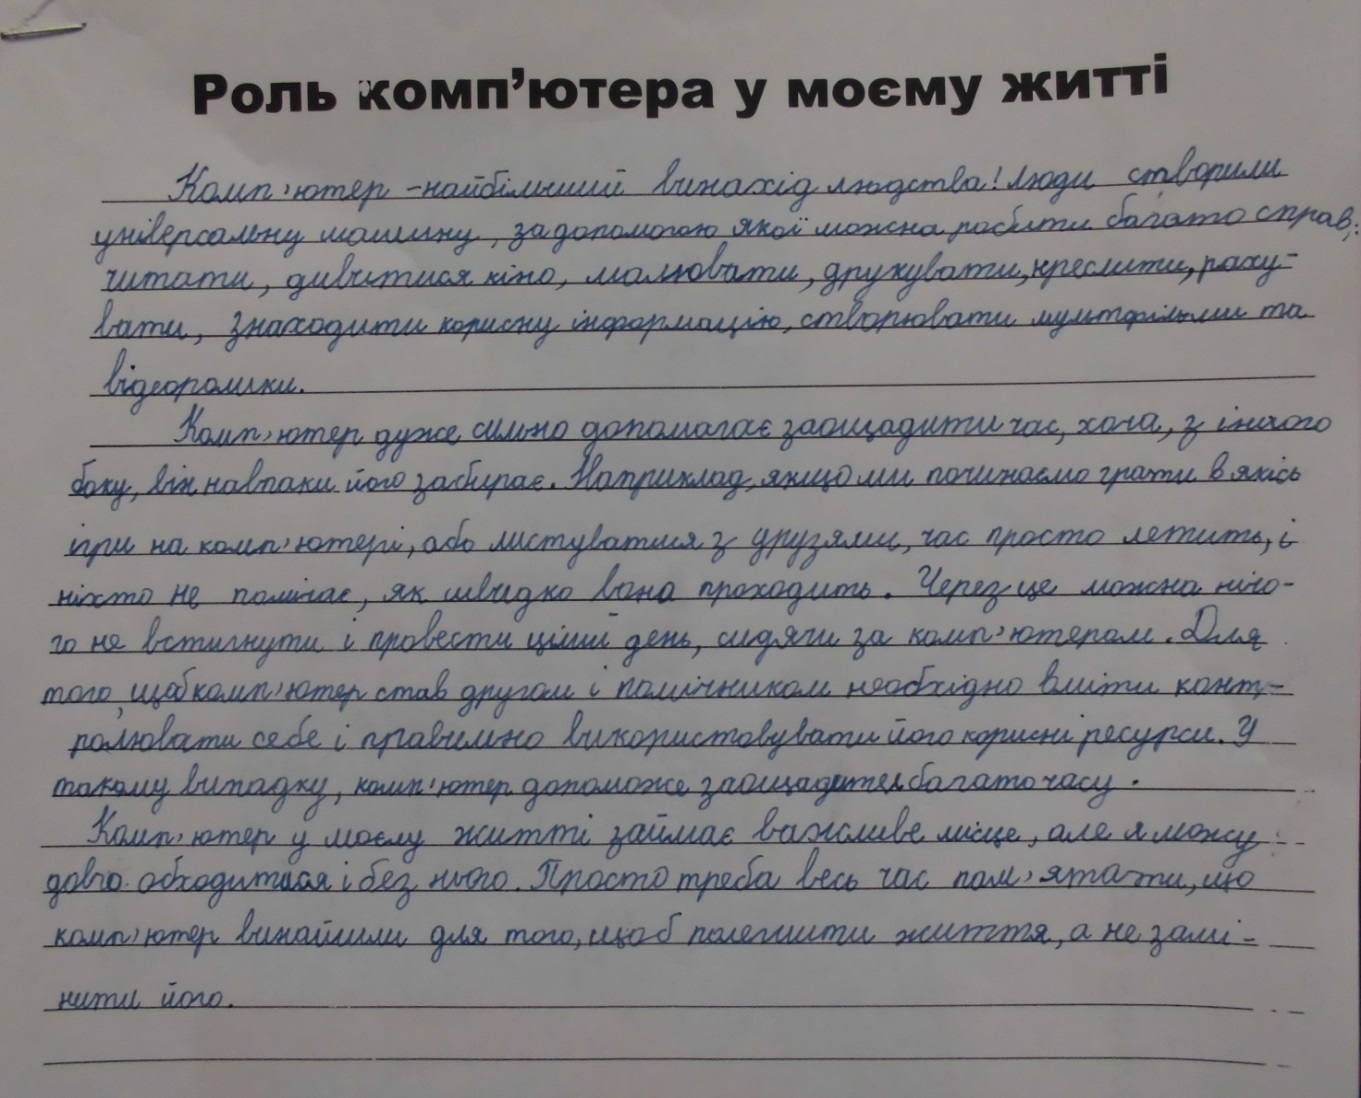 Роль комп'ютера у моєму житті
Комп'ютер - найбільший винахід людства! Люди створили
універсальну машину, за допомогою якої можна робити багато справ:
читати, дивитися кіно, малювати, друкувати, креслити, раху-
вати, знаходити корисну інформацію, створювати мультфільми та
відеоролики.
Комп'ютер дуже сильно допомагає заощадити час, хоча, з іншого
боку, він навпаки його забирає. Наприклад, якщо ми починаємо грати в якісь
ігри на комп'ютері, або листуватися з друзями, час просто летить, і
ніхто не помічає, як швидко вона проходить. Через це можна нічо-
го не встигнути і провести цілий день, сидячи за комп'ютером. Для
того, щоб комп'ютер став другом і помічником необхідно вміти конт-
ролювати себе і правильно використовувати його корисні ресурси. У
такому випадку, комп'ютер допоможе заощадити багато часу.
Комп'ютер у моєму житті займає важливе місце, але я можу
довго обходитися і без нього. Просто треба весь час пам'ятати, що
комп'ютер винайшли для того, щоб полегшити життя, а не замі-
нити його.